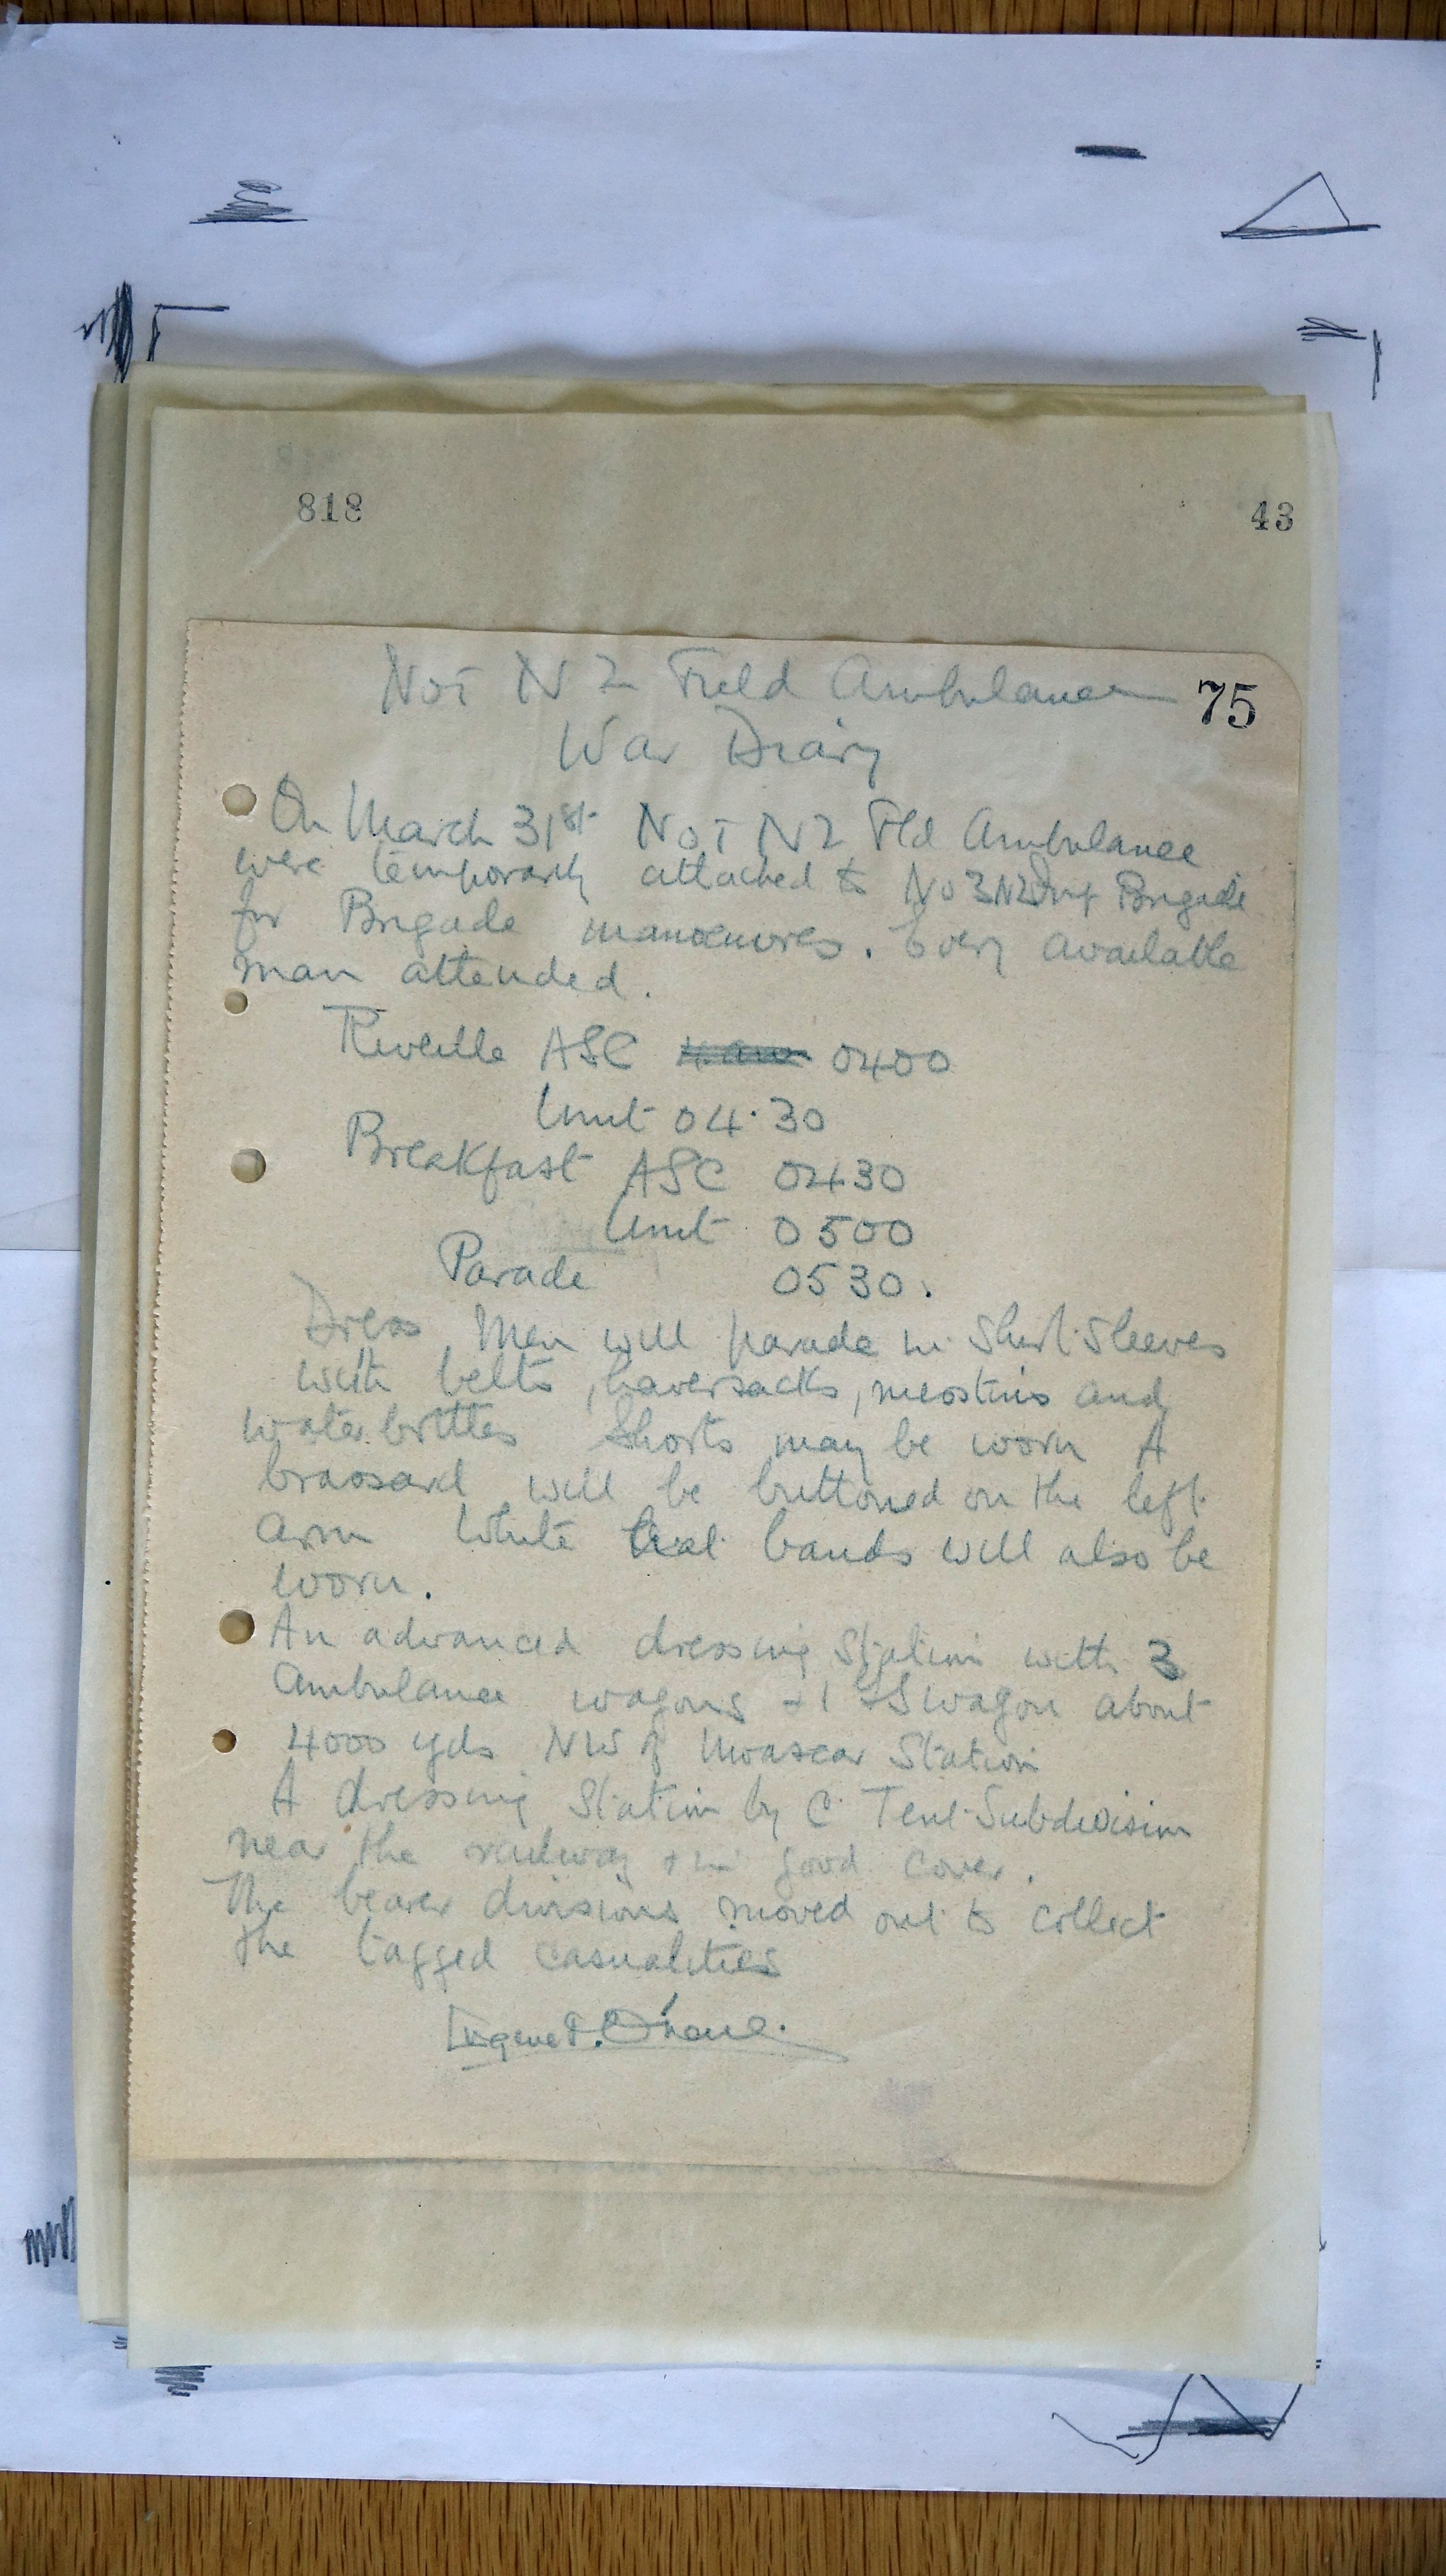 818 43
No I N Z Field Ambulance 75
War Diary
On March 31st No I N Z Fld Ambulance
were temporarily attached to No 3 NZ Inf Brigade
for Brigade manoeuvres. Every available
man attended.
Reveille ASC 0400
Unit 04.30
Breakfast ASC 0430
Unit 0500
Parade 0530.
Dress Men will parade in Shirt Sleeves
with belts, haversacks, messtins and
water bottles Shorts may be worn A
brassard will be buttoned on the left
arm White hat bands will also be
worn.
An advanced dressing Station with 3
Ambulance wagons + 1 wagon about
4000 yds NW of Moascar Station
A dressing Station by C Tent Subdivision
near the railway + in good cover.
The bearer divisions moved out to collect
the tagged casualities
Eugene J. O'